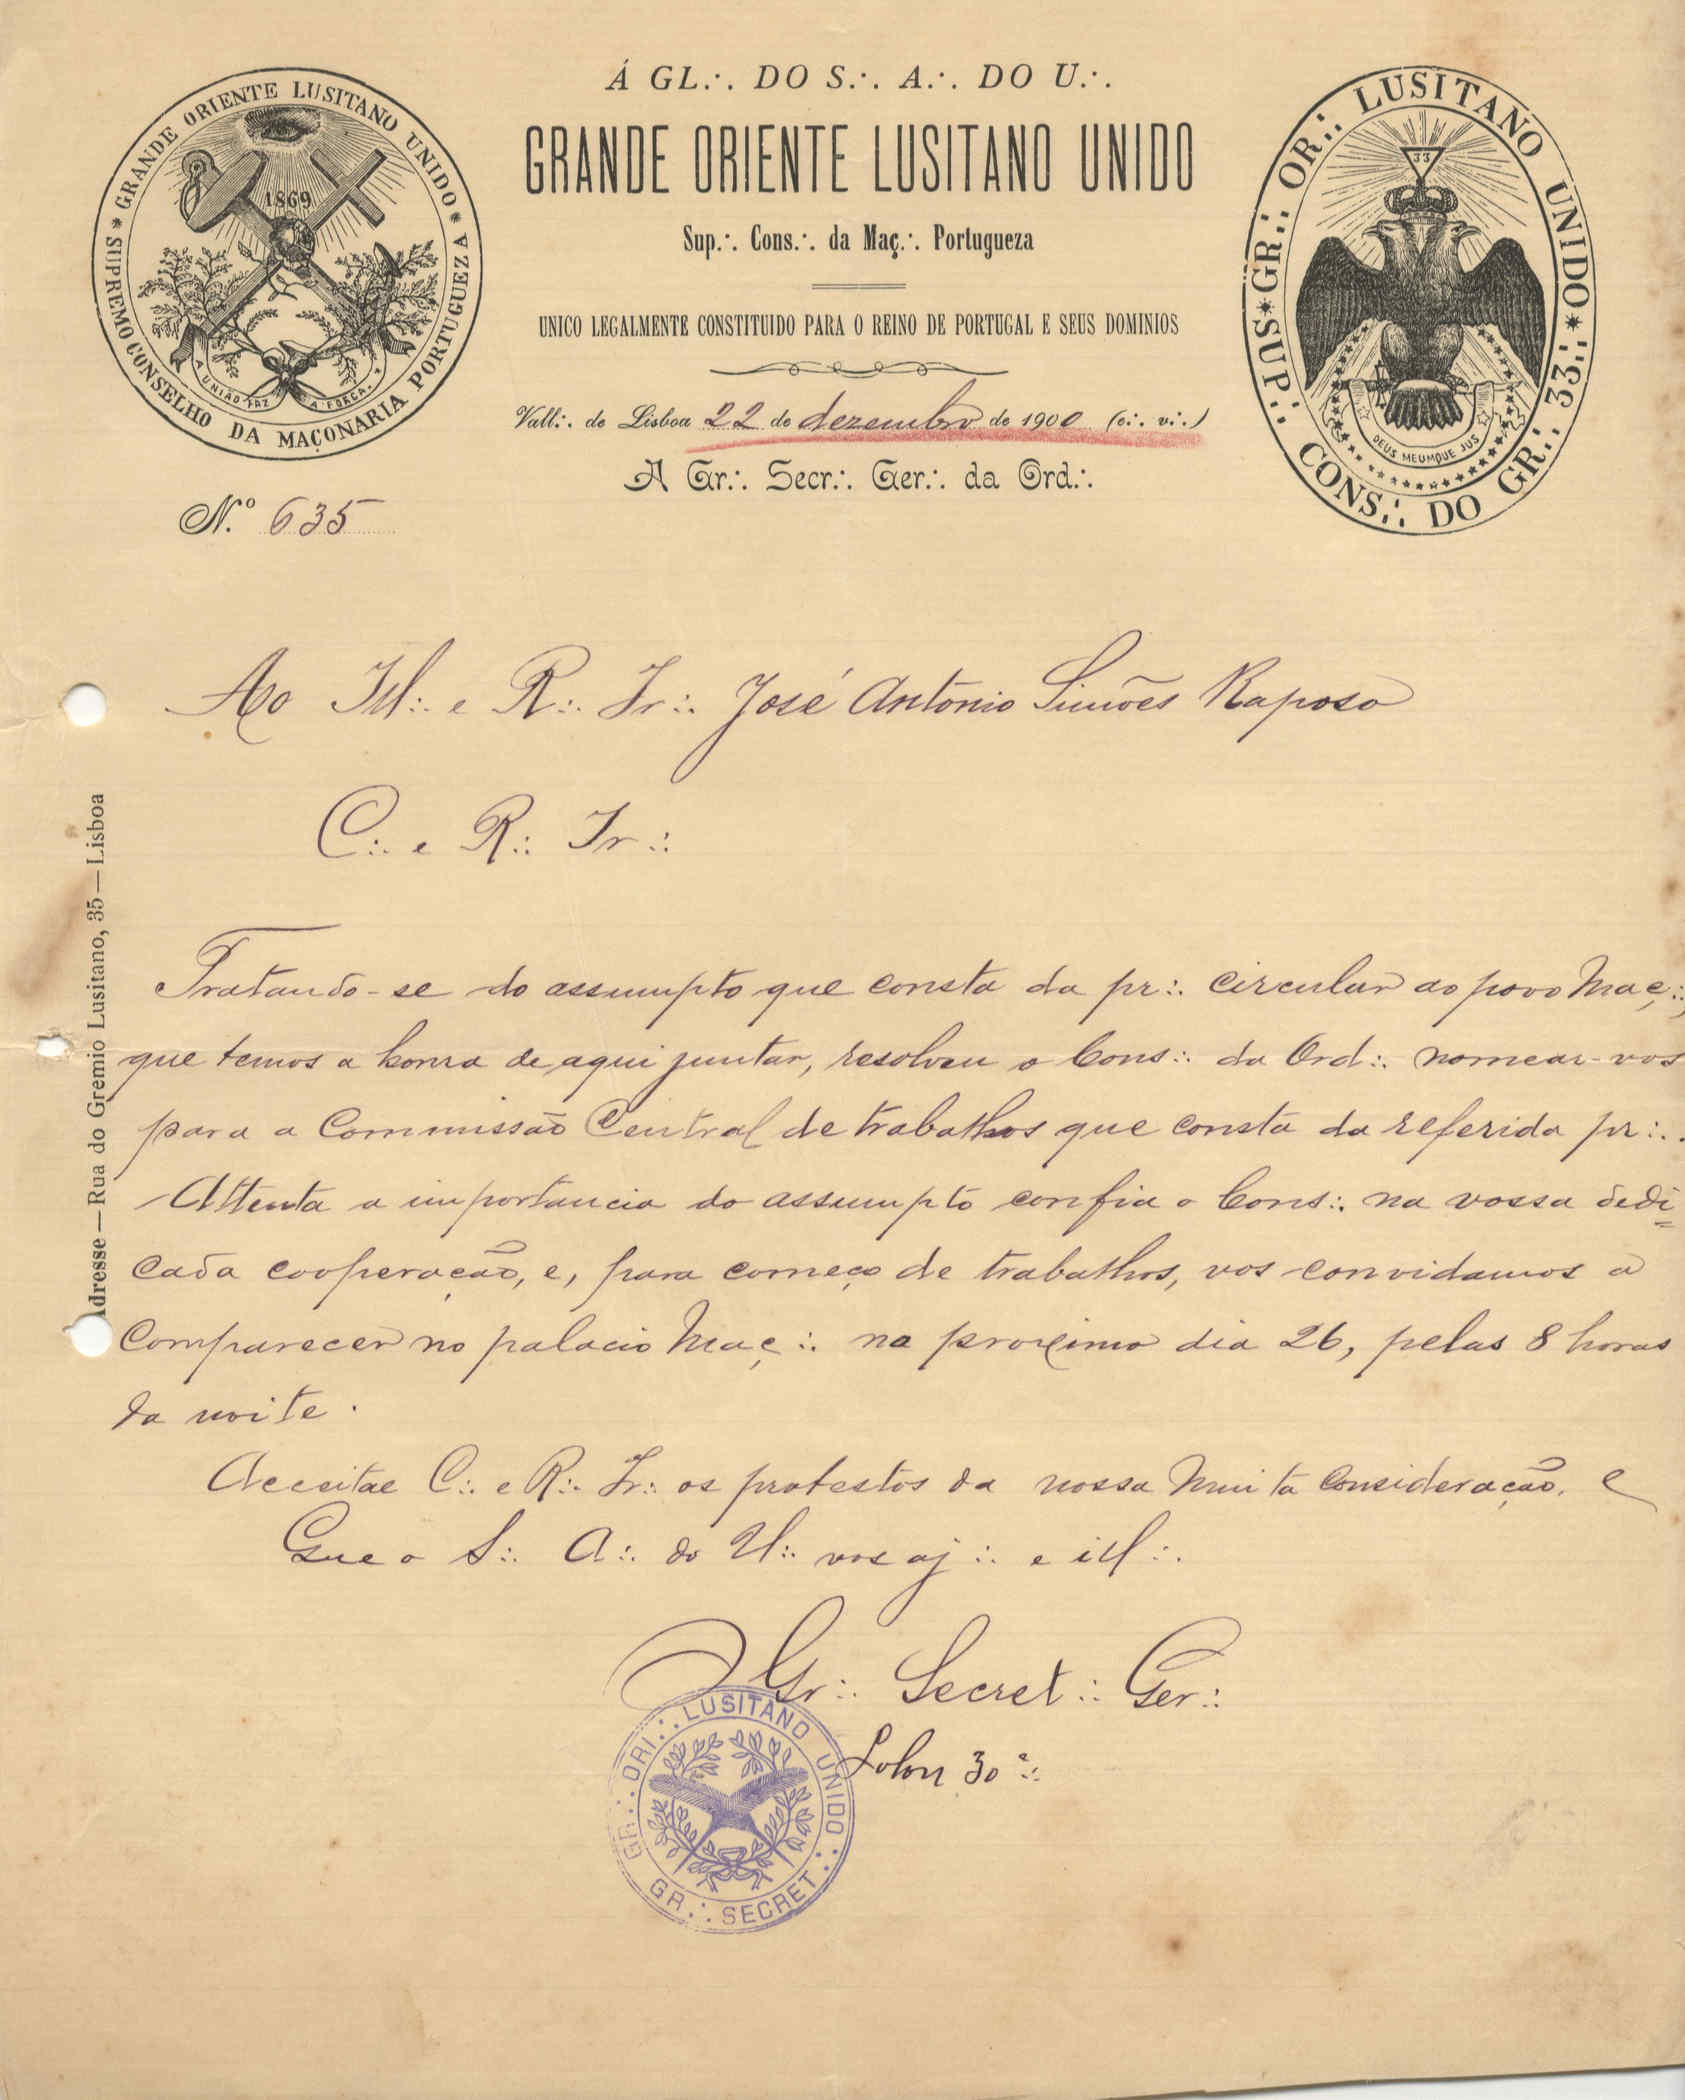 Á GL.·. DO S.·. A.·. DO U.·.
GRANDE ORIENTE LUSITANO UNIDO
Sup.·. Cons.·. da Maç.·. Portugueza
UNICO LEGALMENTE CONSTITUIDO PARA O REINO DE PORTUGAL E SEUS DOMINIOS
Vall.·. de Lisboa 22 de dezembro de 1900 (e.·. v.·.)
A Gr.·. Secr.·. Ger.·. da Ord.·.
* GRANDE ORIENTE LUSITANO UNIDO *
SUPREMO CONSELHO DA MAÇONARIA PORTUGUEZA
1869
A UNIÃO FAZ A FORÇA.
* GR.·. OR.·. LUSITANO UNIDO *
SUP.·. CONS.·. DO GR.·. 33.·.
33
DEUS MEUMQUE JUS
N.º 635
Ao Ill.·. e R.·. Ir.·. José Antonio Simões Raposo
C.·. e R.·. Ir.·.
Tratando-se do assumpto que consta da pr.·. circular ao povo Maç.·.,
que temos a honra de aqui juntar, resolveu o Cons.·. da Ord.·. nomear-vos
para a Commissão Central de trabalhos que consta da referida pr.·..
Attenta a importancia do assumpto confia o Cons.·. na vossa dedi=
cada cooperação, e, para começo de trabalhos, vos convidamos a
comparecer no palacio Maç.·. no proximo dia 26, pelas 8 horas
da noite.
Acceitae C.·. e R.·. Ir.·. os protestos da nossa muita consideração, e
Que o S.·. A.·. do U.·. vos aj.·. e ill.·.
O Gr.·. Secret.·. Ger.·.
Solon 30.·.
GR.·. ORI.·. LUSITANO UNIDO.·.
GR.·. SECRET
Adresse — Rua do Gremio Lusitano, 35 — Lisboa